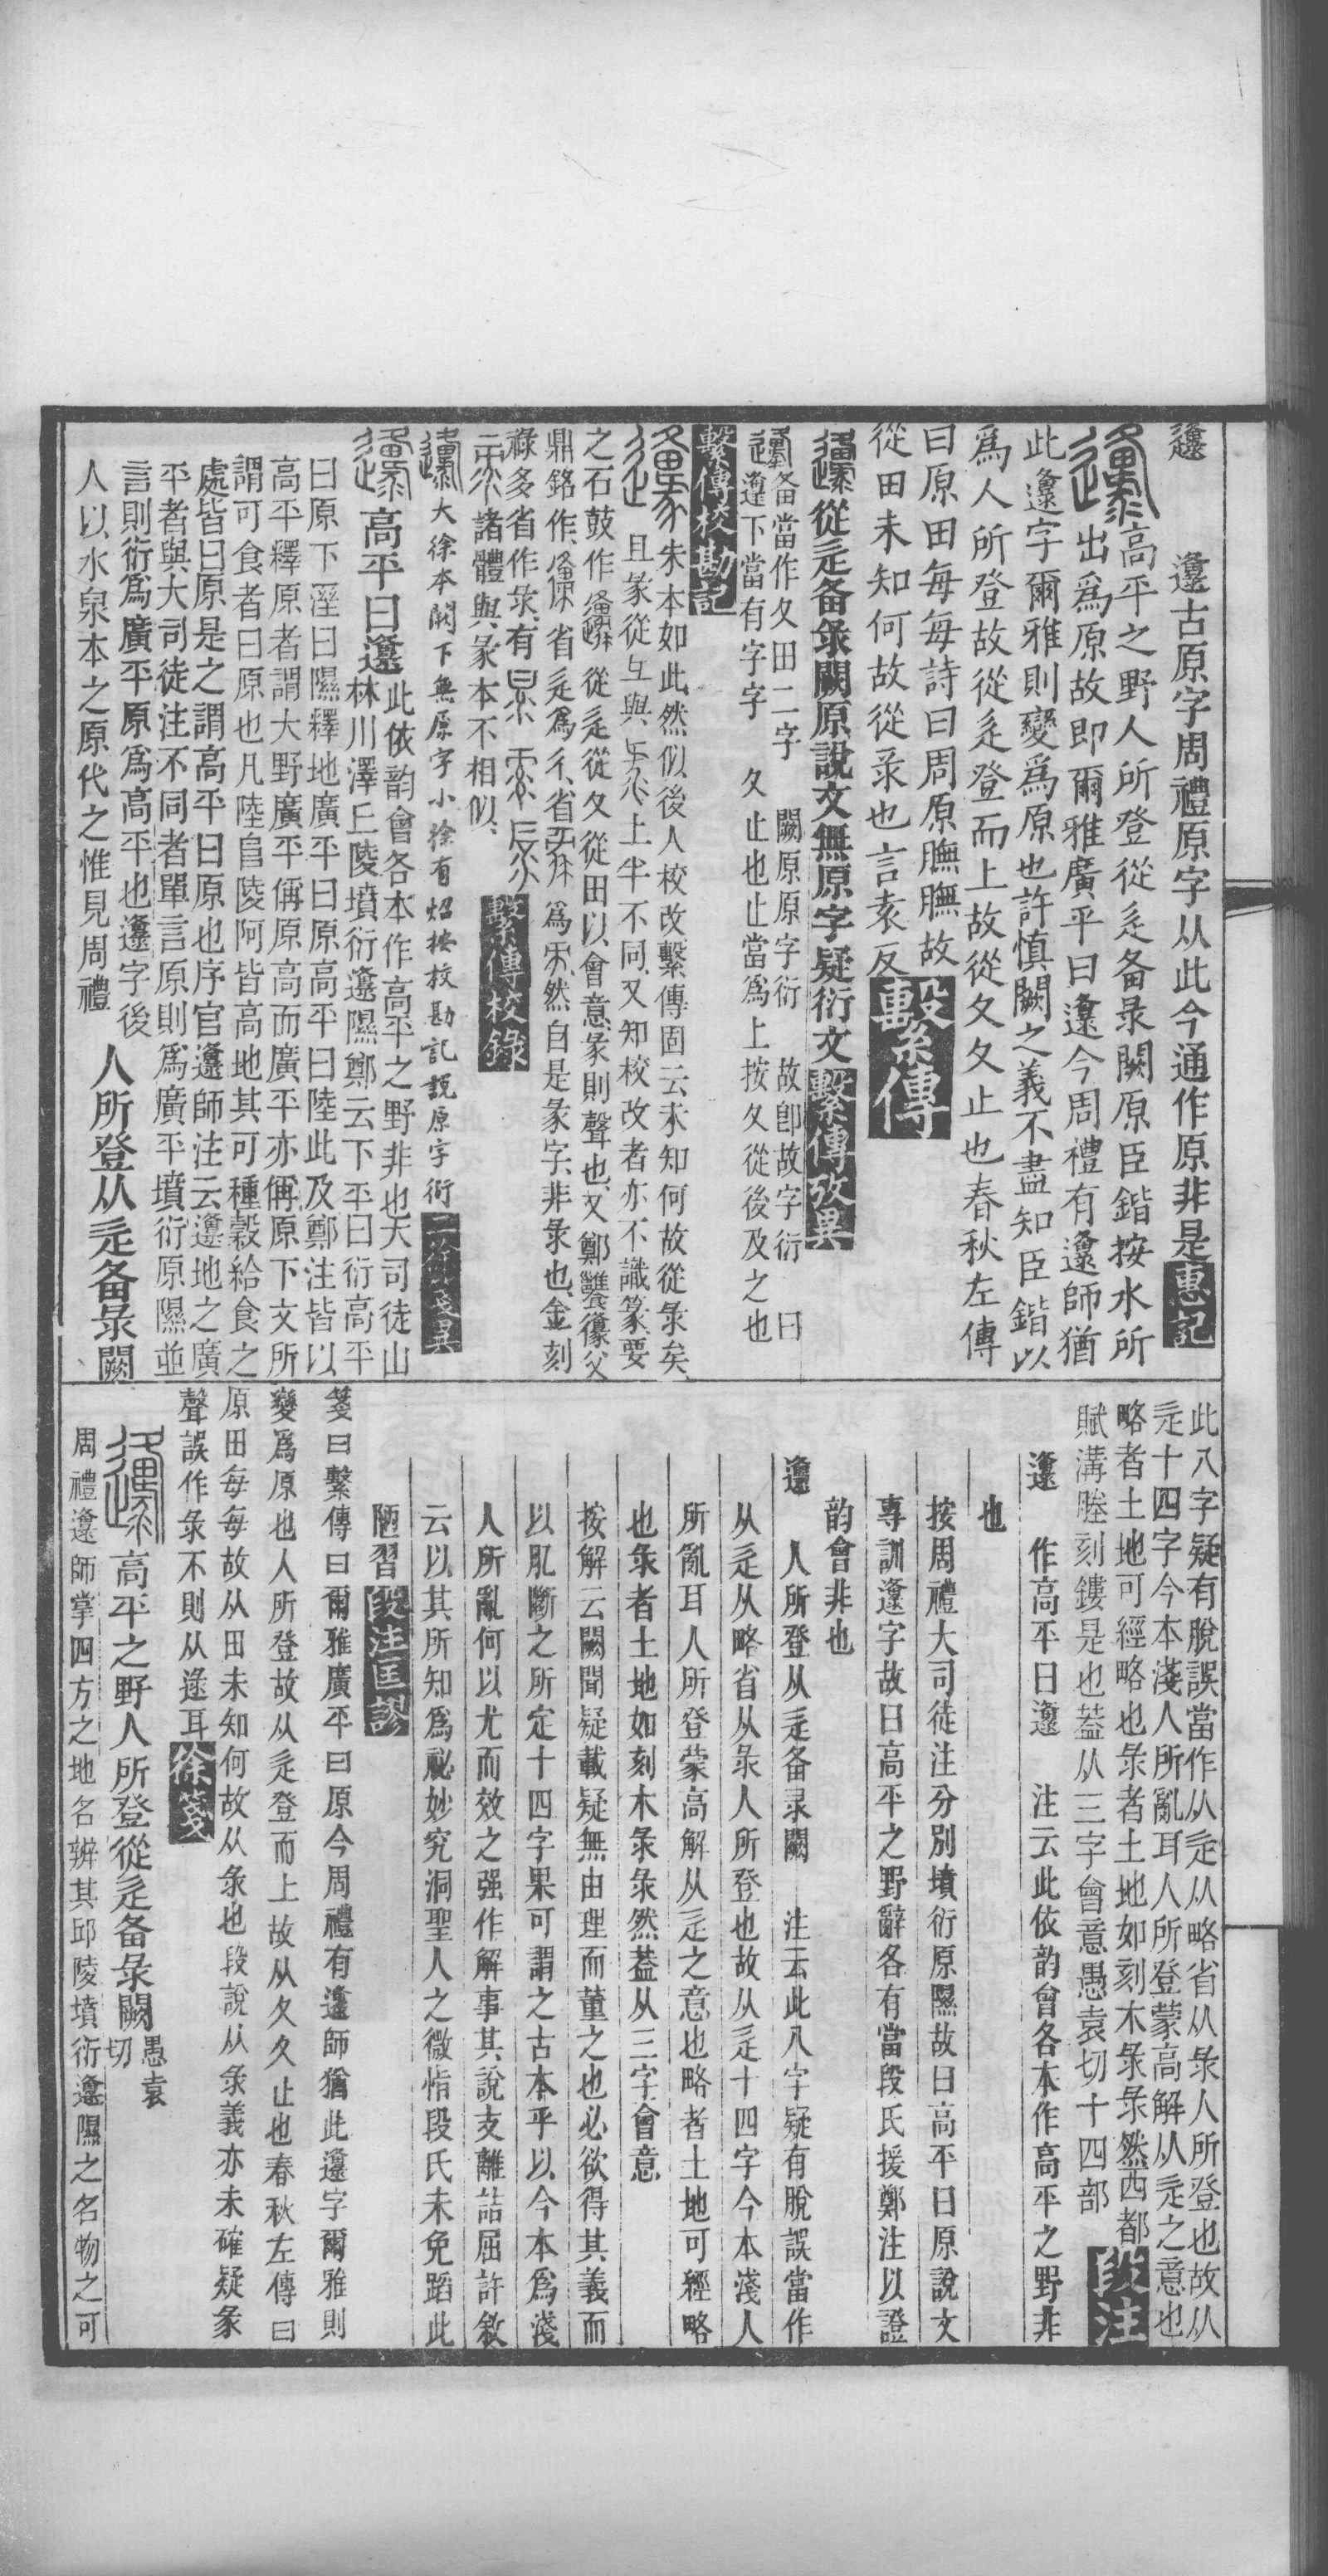 邍
邍古原字周禮原字从此今通作原非是惠記
邍高平之野人所登從辵备彔闕原臣鍇按水所
出爲原故即爾雅廣平曰邍今周禮有邍師猶
此邍字爾雅則變爲原也許慎闕之義不盡知臣鍇以
爲人所登故從辵登而上故從夂夂止也春秋左傳
曰原田每每詩曰周原膴膴故
從田未知何故從彔也言袁反繫傳
邍從辵备彔闕原說文無原字疑衍文繫傳攷異
邍备當作夂田二字 闕原原字衍 故卽故字衍 曰
邍下當有字字 夂止也止當爲上按夂從後及之也
繫傳校勘記
邍朱本如此然似後人校改繫傳固云未知何故從彔矣
且彖從彑與上半不同又知校改者亦不識篆要
之石鼓作從辵從夂從田以會意彖則聲也又鄭饔邍父
鼎銘作省辵爲彳省爲然自是彖字非彔也金刻
祿多省作彔有
諸體與彖本不相似繫傳校錄
邍大徐本闕下無原字小徐有炤按校勘記說原字衍二徐箋異
邍高平曰邍此依韵會各本作高平之野非也大司徒山
林川澤丘陵墳衍邍隰鄭云下平曰衍高平
曰原下溼曰隰釋地廣平曰原高平曰陸此及鄭注皆以
高平釋原者謂大野廣平偁原高而廣平亦偁原下文所
謂可食者曰原也凡陸𨸏陵阿皆高地其可種穀給食之
處皆曰原是之謂高平曰原也序官邍師注云邍地之廣
平者與大司徒注不同者單言原則爲廣平墳衍原隰並
言則衍爲廣平原爲高平也邍字後
人以水泉本之原代之惟見周禮 人所登从辵备彔闕
此八字疑有脫誤當作从辵从略省从彔人所登也故从
辵十四字今本淺人所亂耳人所登蒙高解从辵之意也
略者土地可經略也彔者土地如刻木彔彔然西都
賦溝塍刻鏤是也葢从三字會意愚袁切十四部段注
邍 作高平曰邍 注云此依韵會各本作高平之野非
也
按周禮大司徒注分別墳衍原隰故曰高平曰原說文
專訓邍字故曰高平之野辭各有當段氏援鄭注以證
韵會非也
邍 人所登从辵备彔闕 注云此八字疑有脫誤當作
从辵从略省从彔人所登也故从辵十四字今本淺人
所亂耳人所登蒙高解从辵之意也略者土地可經略
也彔者土地如刻木彔彔然葢从三字會意
按解云闕聞疑載疑無由理而董之也必欲得其義而
以肊斷之所定十四字果可謂之古本乎以今本爲淺
人所亂何以尤而效之强作解事其說支離詰屈許敘
云以其所知爲祕妙究洞聖人之微恉段氏未免蹈此
陋習段注匡謬
箋曰繫傳曰爾雅廣平曰原今周禮有邍師猶此邍字爾雅則
變爲原也人所登故从辵登而上故从夂夂止也春秋左傳曰
原田每每故从田未知何故从彔也段說从彔義亦未確疑彖
聲誤作彔不則从逯耳徐箋
邍高平之野人所登從辵备彔闕愚袁切
周禮邍師掌四方之地名辨其邱陵墳衍邍隰之名物之可